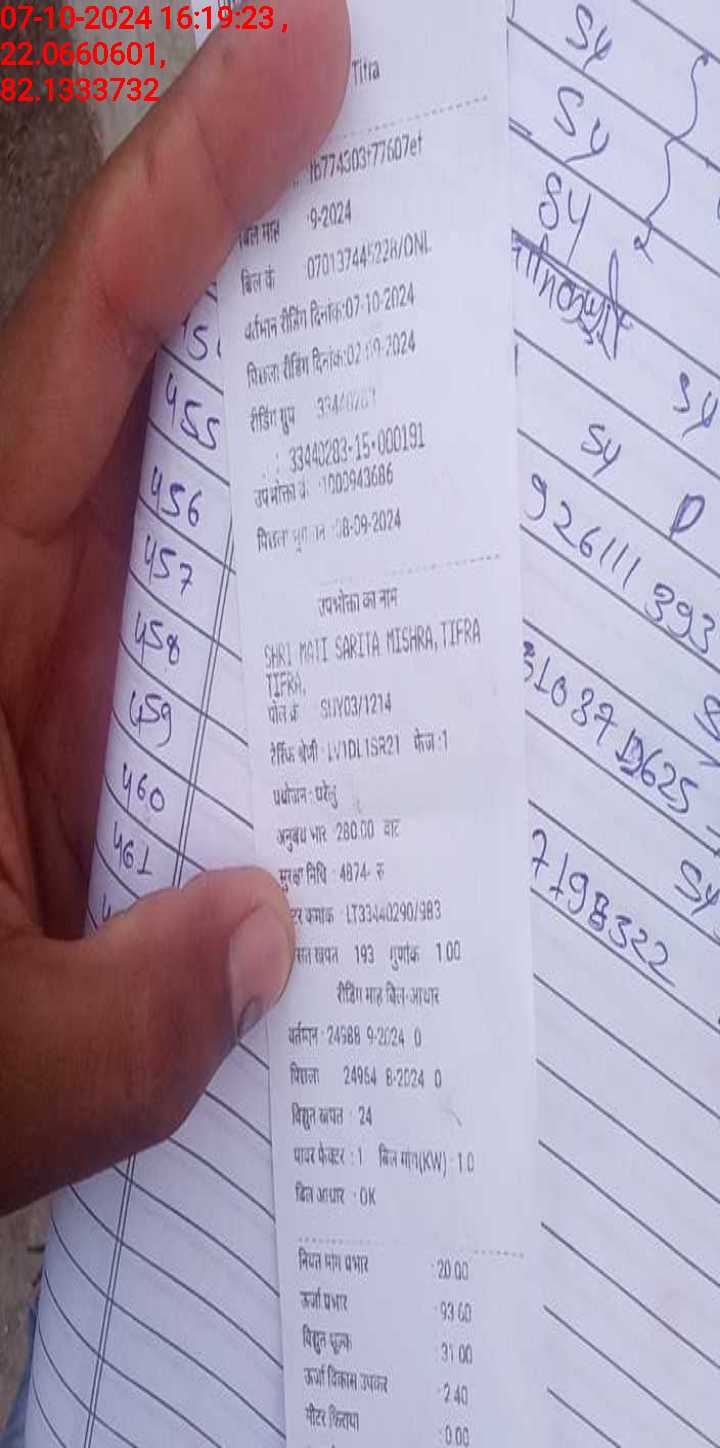 07-10-2024 16:19:23 ,
22.0660601,
82.1333732
बिल माह 9-2024
बिल कं 070137445228/ONL
वर्तमान रीडिंग दिनांक:07-10-2024
पिछला रीडिंग दिनांक:02-09-2024
रीडिंग ग्रुप
33440283-15-000191
उपभोक्ता कं :1000943686
पिछला 08-09-2024
उपभोक्ता का नाम
SHRI MATI SARITA MISHRA, TIFRA
TIFRA,
पोल कं SUY03/1214
टेरिफ श्रेणी : LV1DL1SR21 फेज :1
प्रयोजन : घरेलु
अनुबंध भार : 280.00 वाट
सुरक्षा निधि : 4874- रु
क्रमांक LT33440290/983
खपत 193 गुणांक 1.00
रीडिंग माह बिल-आधार
वर्तमान 24988 9-2024 0
पिछला 24964 8-2024 0
विद्युत खपत : 24
पावर फेक्टर : 1 बिल मांग(KW) : 1.0
बिल आधार : OK
नियत मांग प्रभार :20.00
ऊर्जा प्रभार :93.60
विद्युत शुल्क :31.00
ऊर्जा विकास उपकर :2.40
मीटर किराया :0.00
455
456
457
458
459
460
461
Sy
Sy
Sy
Sy
Sy
926111393
7198322